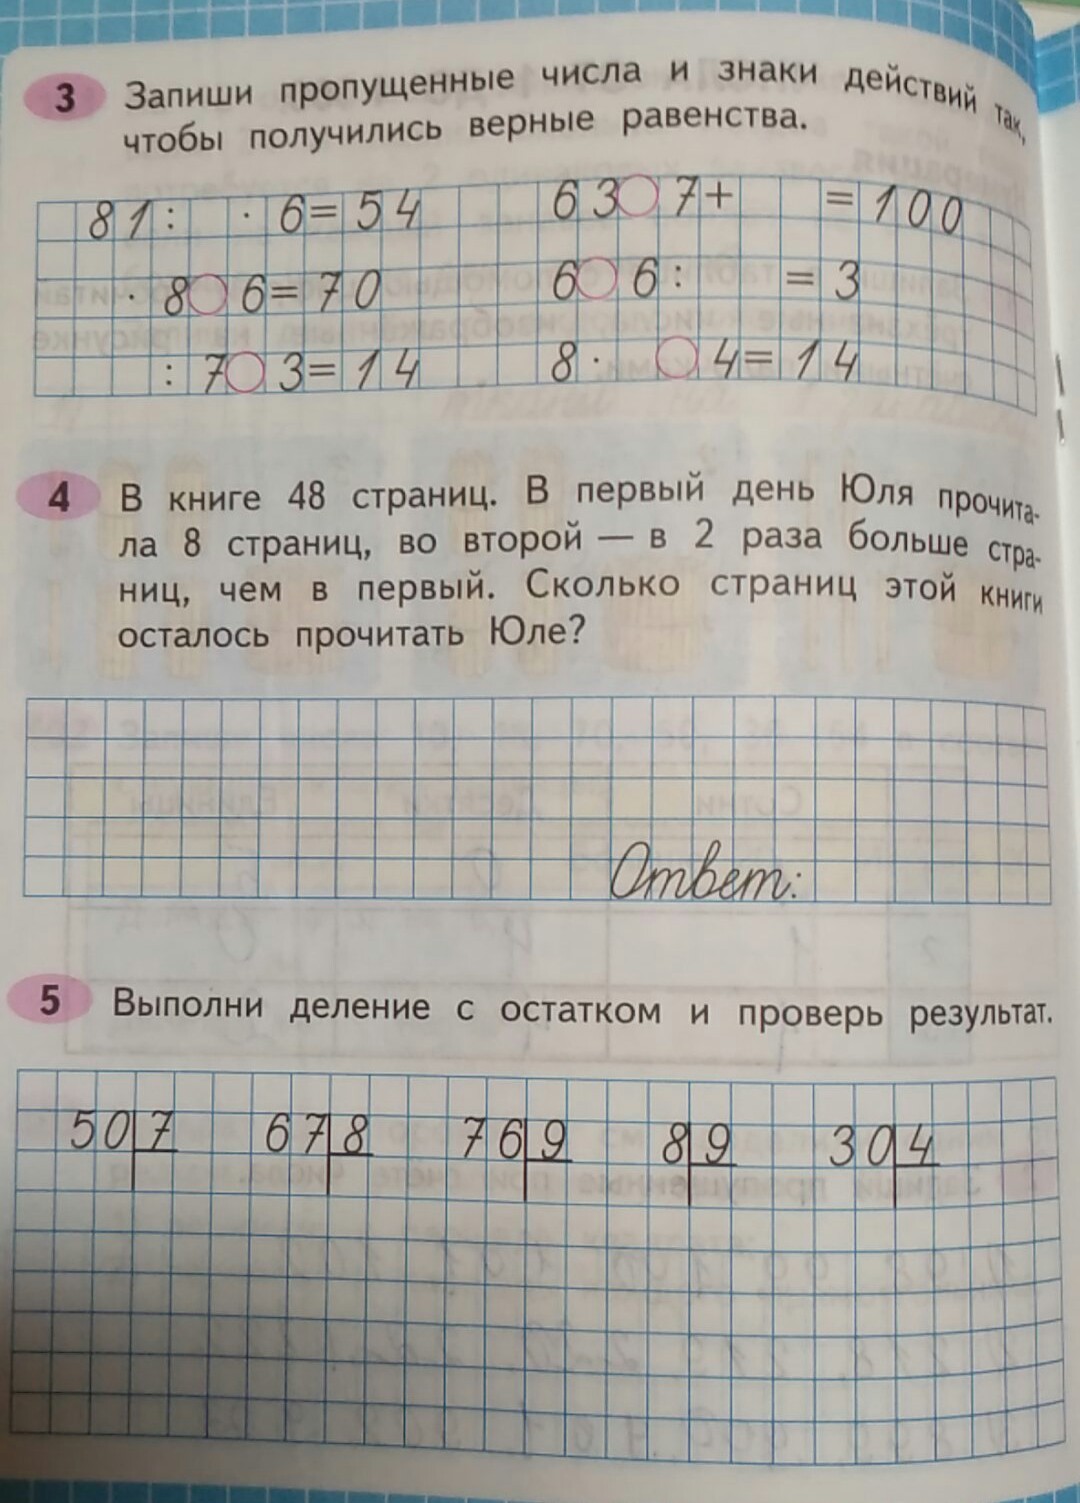 3 Запиши пропущенные числа и знаки действий так,
чтобы получились верные равенства.
81 : · 6 = 54 63 ○ 7 + = 100
· 8 ○ 6 = 70 6 ○ 6 : = 3
: 7 ○ 3 = 14 8 · ○ 4 = 14
4 В книге 48 страниц. В первый день Юля прочита-
ла 8 страниц, во второй — в 2 раза больше стра-
ниц, чем в первый. Сколько страниц этой книги
осталось прочитать Юле?
Ответ:
5 Выполни деление с остатком и проверь результат.
50 7 67 8 76 9 8 9 30 4